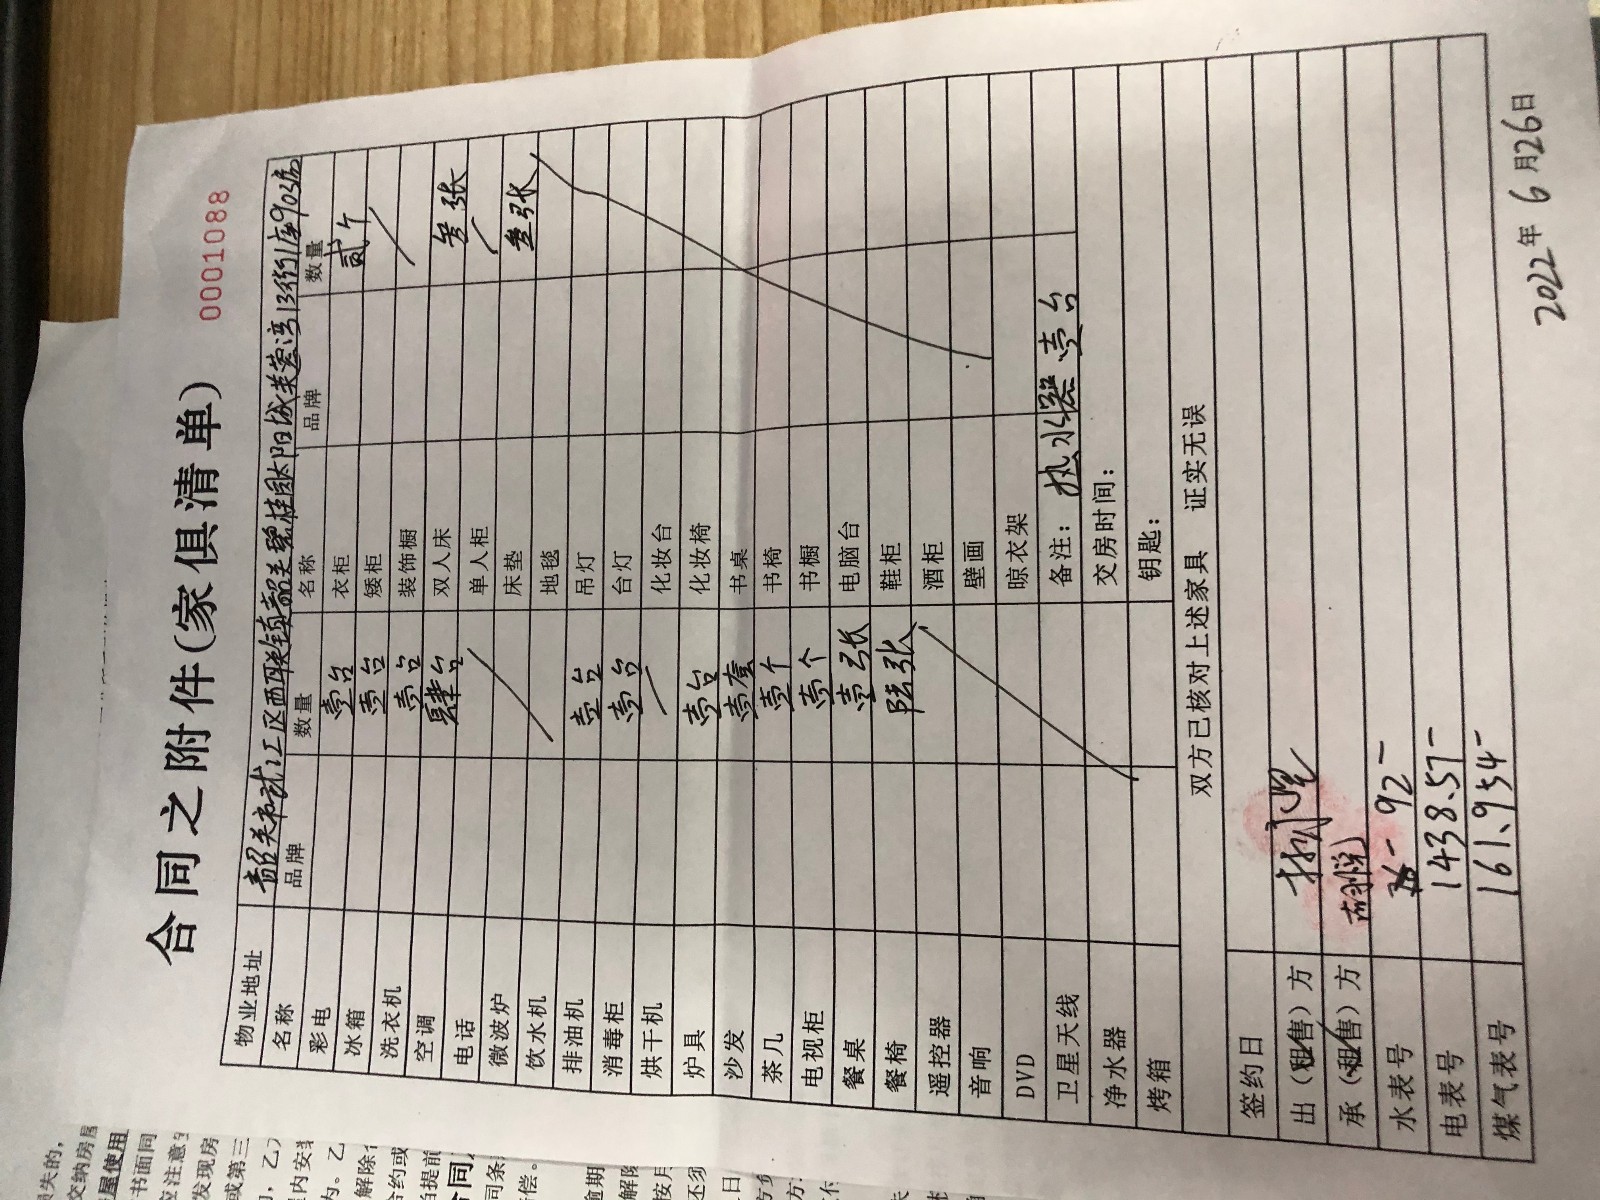 0001088
合同之附件(家俱清单)
物业地址 韶关市武江区西联镇韶关碧桂园太阳城芙蓉湾13街1座902房
名称 品牌 数量 名称 品牌 数量
彩电 壹台 衣柜 贰个
冰箱 壹台 矮柜
洗衣机 壹台 装饰橱
空调 肆台 双人床 叁张
电话 单人柜
微波炉 床垫 叁张
饮水机 地毯
排油机 壹台 吊灯
消毒柜 壹台 台灯
烘干机 化妆台
炉具 壹台 化妆椅
沙发 壹套 书桌
茶几 壹个 书椅
电视柜 壹个 书橱
餐桌 壹张 电脑台
餐椅 陆张 鞋柜
遥控器 酒柜
音响 壁画
DVD 晾衣架
卫星天线 备注: 热水器 壹台
净水器 交房时间:
烤箱 钥匙:
双方已核对上述家具 证实无误
签约日
出(租/售)方
承(租/售)方
水表号 92
电表号 1438.57
煤气表号 161.954
2022年6月26日
损失的,
交纳房屋
屋使用
书面同
应注意
发现房
或第三
内安
解除
合约或
提前
合同
同条
偿。
逾期
解除
按月
还须